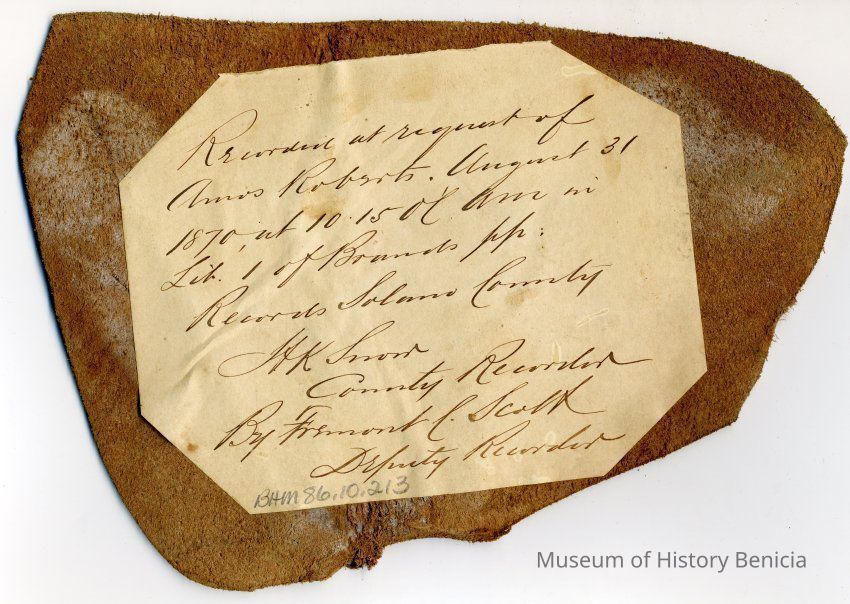 Recorded at request of
Amos Roberts. August 31
1870, at 10.15 Ocl. Am in
Lib. 1 of Brands pp:
Records Solano County
HK Snow
County Recorder
By Fremont C. Scott
Deputy Recorder
BHM 86.10.213
Museum of History Benicia